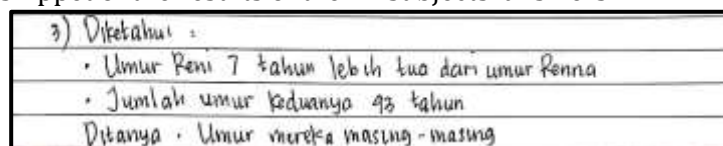 3) Diketahui :
• Umur Reni 7 tahun lebih tua dari umur Renna
• Jumlah umur keduanya 43 tahun
Ditanya • Umur mereka masing-masing